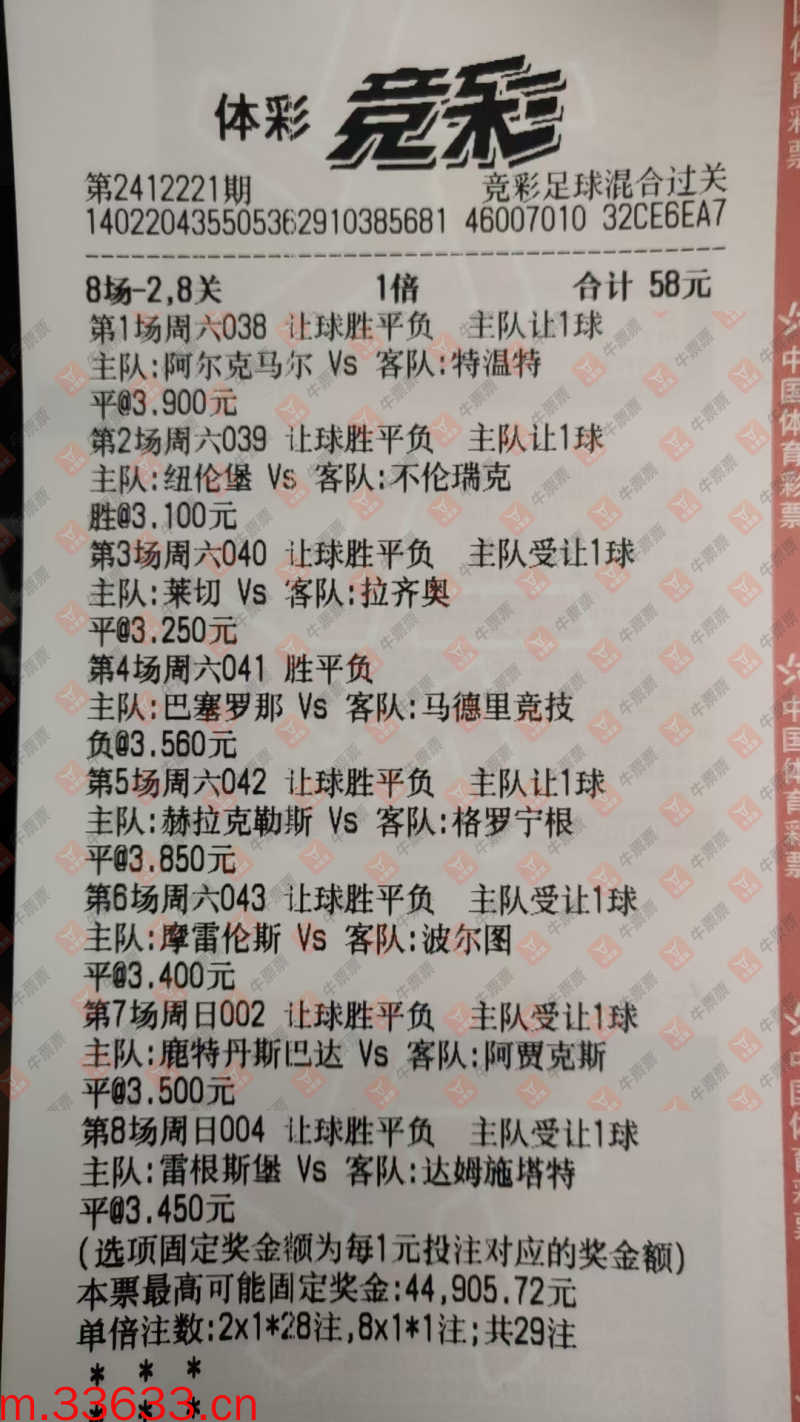 体彩 竞彩
第2412221期 竞彩足球混合过关
140220435505362910385681 46007010 32CE6EA7
8场-2,8关 1倍 合计 58元
第1场周六038 让球胜平负 主队让1球
主队:阿尔克马尔 Vs 客队:特温特
平@3.900元
第2场周六039 让球胜平负 主队让1球
主队:纽伦堡 Vs 客队:不伦瑞克
胜@3.100元
第3场周六040 让球胜平负 主队受让1球
主队:莱切 Vs 客队:拉齐奥
平@3.250元
第4场周六041 胜平负
主队:巴塞罗那 Vs 客队:马德里竞技
负@3.560元
第5场周六042 让球胜平负 主队让1球
主队:赫拉克勒斯 Vs 客队:格罗宁根
平@3.850元
第6场周六043 让球胜平负 主队受让1球
主队:摩雷伦斯 Vs 客队:波尔图
平@3.400元
第7场周日002 让球胜平负 主队受让1球
主队:鹿特丹斯巴达 Vs 客队:阿贾克斯
平@3.500元
第8场周日004 让球胜平负 主队受让1球
主队:雷根斯堡 Vs 客队:达姆施塔特
平@3.450元
(选项固定奖金额为每1元投注对应的奖金额)
本票最高可能固定奖金:44,905.72元
单倍注数:2x1*28注,8x1*1注;共29注
* * *
m.33633.cn
国体育彩票
中国体育彩票
中国体育彩票
中国体育彩票
牛票票